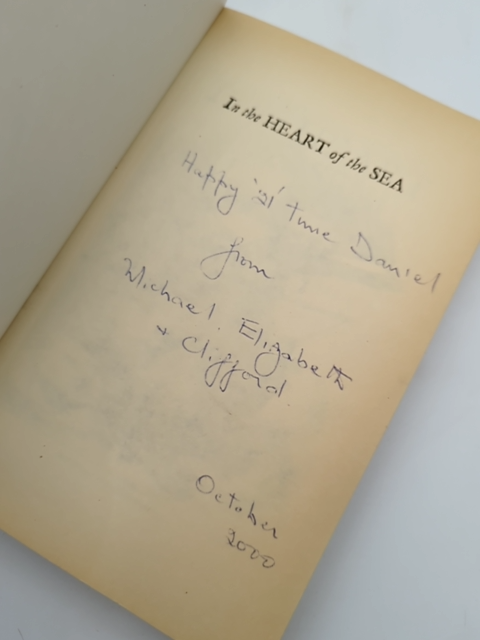 In the HEART of the SEA
Happy '21' time Daniel
from
Michael. Elizabeth
+ Clifford.
October
2000